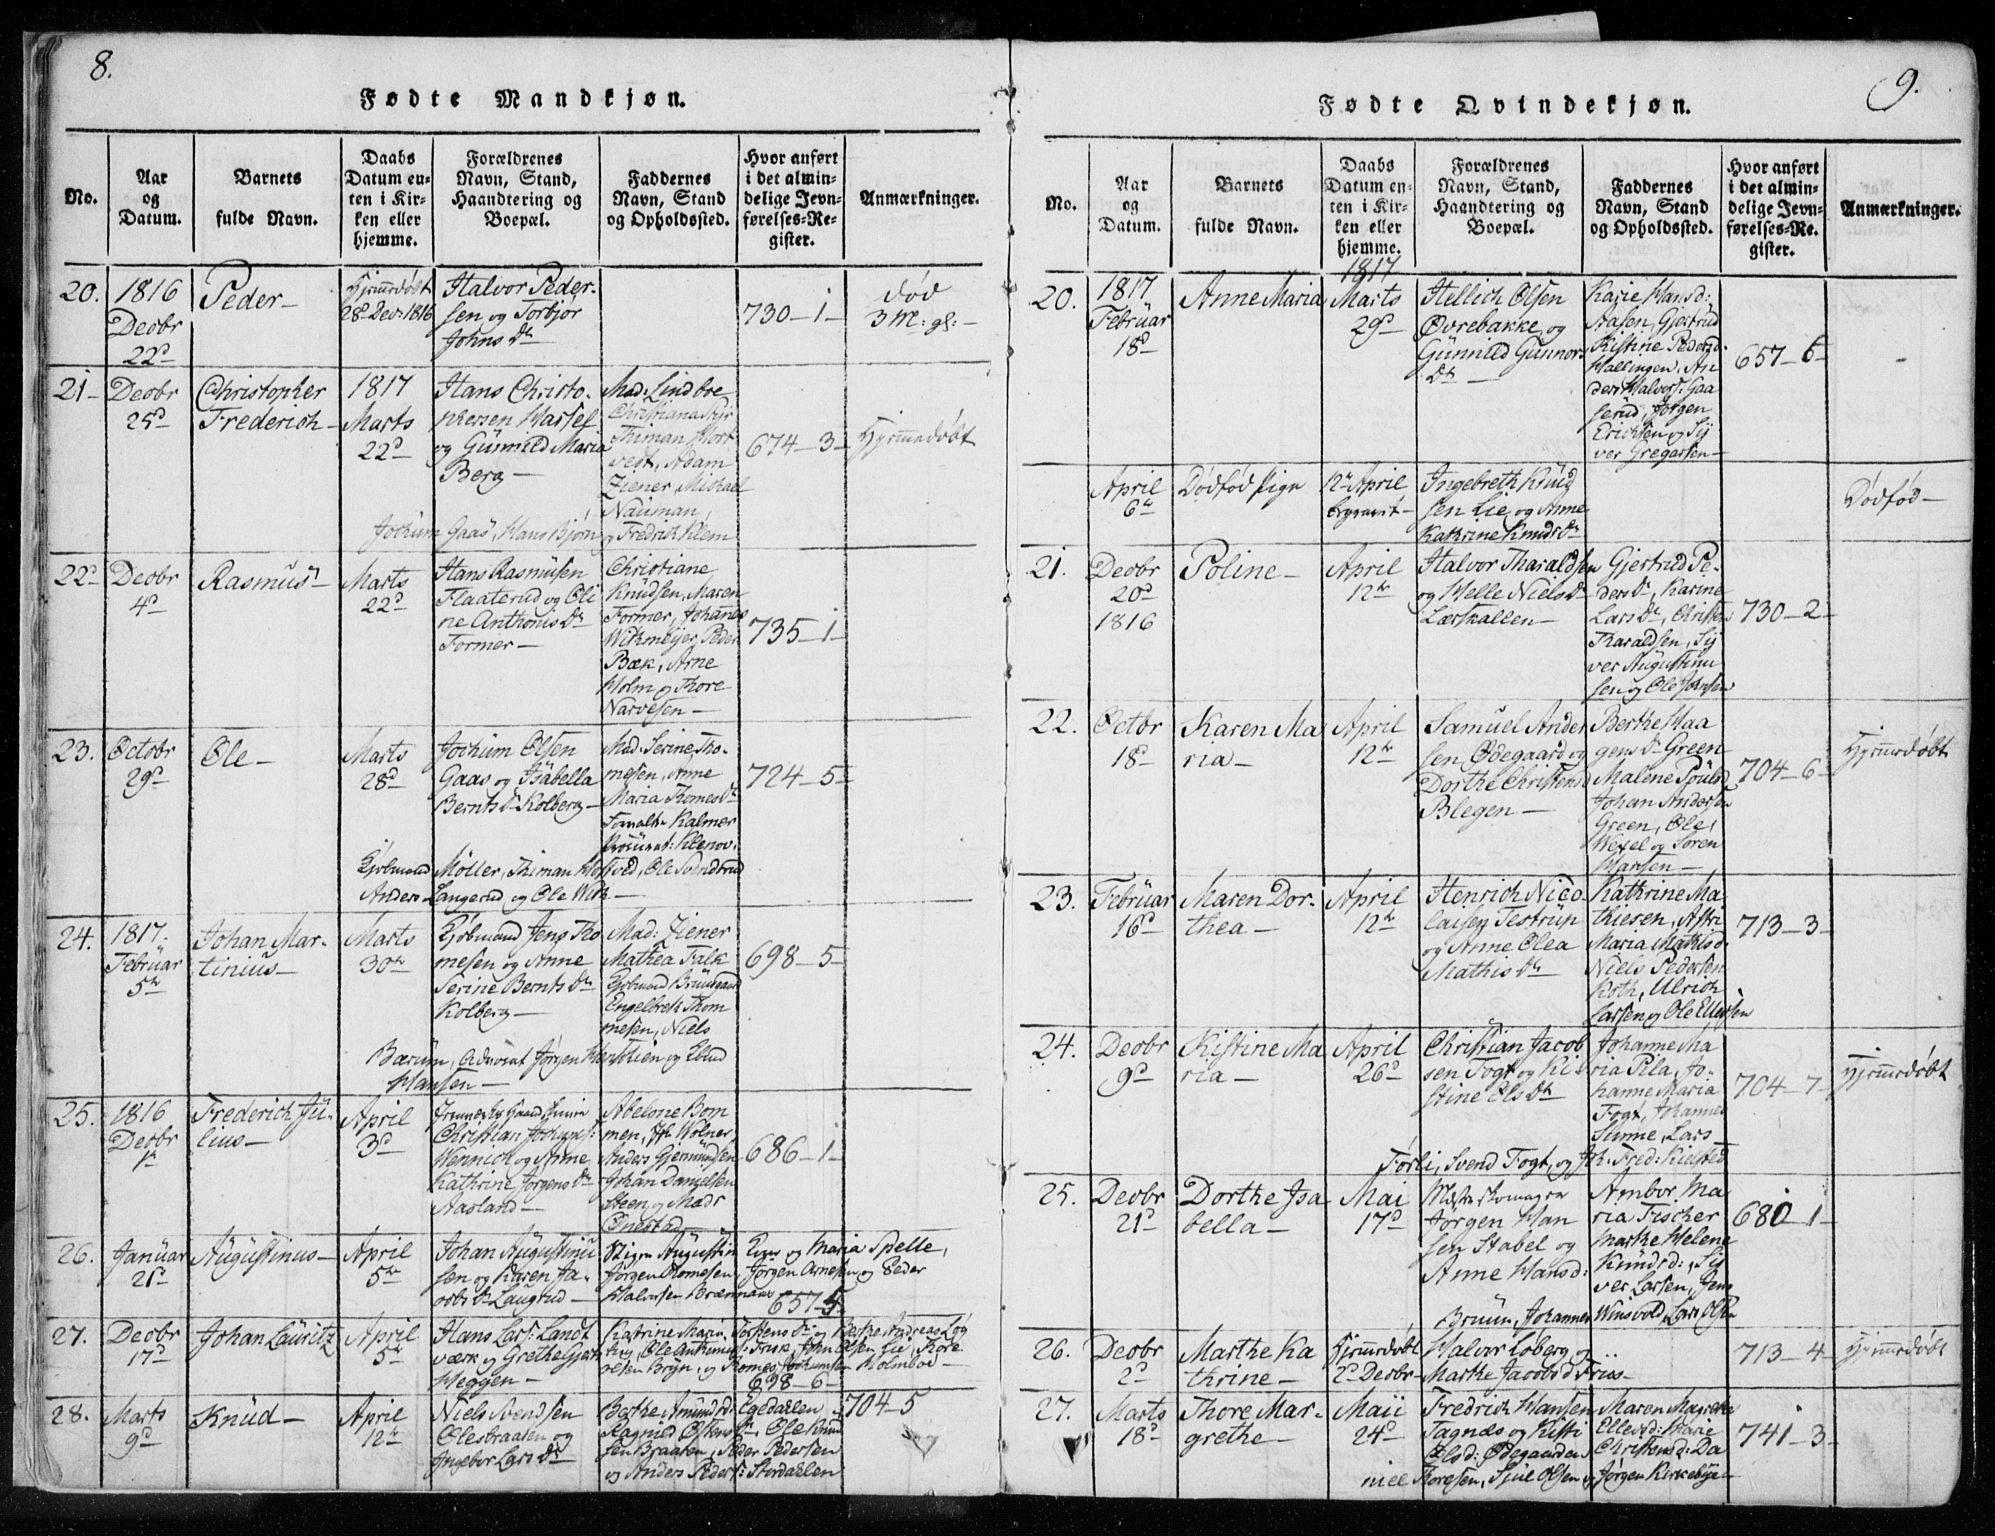 8.
Fødte Mandkjøn.
No.
Aar
og
Datum.
Barnets
fulde Navn.
Daabs
Datum en-
ten i Kir-
ken eller
hjemme.
Forældrenes
Navn, Stand,
Haandtering og
Boepæl.
Faddernes
Navn, Stand
og Opholdssted.
Hvor anført
i det almin-
delige Jevn-
førelses-Re-
gister.
Anmærkninger.
20.
1816
Decbr
22d
Peder
Hjemedøbt
28d Dec: 1816
Halvor Peder-
sen og Torbjør
Johns Dr
730-1-
død
3 M: gl:
21
Decbr
25d
Christopher
Frederich
1817
Marts
22d
Hans Christo-
phersen Hassel
og Gunnild Maria
Berg
Mad. Lindboe
Christiana
Thiman Mort
vest, Adam
Ziener, Michael
Nauman,
Jochum Gaas, Hans Bjørn og Fredrich Klem
674-3-
Hjemedøbt
22d
Decbr
4d
Rasmus
Marts
22d
Hans Rasmusen
Flaaterud og Oli
ne Anthonis Dr
Former
Christiane
Knudsen, Maren
Former, Johanes
Withmeijer, Peder
Bæk, Arne
Holm og Thore
Narvesen
735-1-
23.
Octobr
29d
Ole
Marts
28d
Jochum Olsen
Gaas og Isabella
Bernts Dr Kolberg
Mad. Serine Tho-
mesen, Anne
Maria Thomes Dr
Kalmer
Klenov.
Kjøbmand Møller, Thiman Mortved, Ole
Anders Langerud og Ole With
724-5-
24.
1817.
Februar
5te
Johan Mar-
tinius
Marts
30te
Kjøbmand Jens Tho
mesen og Anne
Serine Bernts Dr
Kolberg
Mad: Ziener
Mathea Falk
Kjøbmand
Engelbreth Thom
mesen, Niels
Bærum, Advocat Jørgen og
Hansen
698-5-
25.
1816
Decbr
1te
Frederich Ju-
lius
April
3d
Christian
Wennich og Anne
Kathrine Jørgens Dr
Aasland
Abelone Bom
men, Wolner,
Anders Gjermundsen
Johan Danielsen
Steen, og Mads
Onestad
686-1-
26.
Januar
21d
Augustinus
April
5te
Johan Augustinu
sen og Karen Ja-
cobs Dr Laugrud
Augustin og Maria Spelle,
Jørgen Thomesen, Jørgen Arnesen og Peder
Halvorsen
657-5
27.
Decbr
17d
Johan Lauritz
April
5te
Hans Lars: Landt
værk og Grethe
Heggen
Katrine Marie
og Thomes Jochumsen Holmboe
698-6-
28.
Marts
9d
Knud
April
12te
Niels Svendsen
Olesbraaten og
Ingebor Lars Dr
Berthe Amunds d: Egedallen
Ragnild Ostens Dr, Ole Knud
sen Braaten, Peder Pedersen
og Anders Peders: Stordallen
704-5
9.
Fødte Qvindekjøn.
No.
Aar
og
Datum.
Barnets
fulde Navn.
Daabs
Datum en-
ten i Kir-
ken eller
hjemme.
Forældrenes
Navn, Stand,
Haandtering og
Boepæl.
Faddernes
Navn, Stand
og Opholdssted.
Hvor anført
i det almin-
delige Jevn-
førelses-Re-
gister.
Anmærkninger.
20.
1817
Februar
18d
Anne Maria
1817
Marts
29d
Hellich Olsen
Øvrebakke, og
Gunnild Gunnors
Dr
Karie Hansd:
Aasen, Gjertrud
Kistine Pedersd.
Hallingen, An
ders Halvors: Gaa
serud, Jørgen
Erichsen og Sij
ver Gregersen
657-6-
April
6te
Dødfød Pige
12te April
begravet
Ingebreth Knud
sen Lie, og Anne
Kathrine Knuds Dr
Dødfød
21.
Decbr
20d
1816
Poline
April
12te
Halvor Tharaldsen
og Helle Niels Dr
Lærskallen
Gjertrud Pe-
ders Dr, Karine
Lars Dr, Christen
Tharaldsen, Sij
ver Augustinu
sen og Ole Johnsen
730-2-
22.
Octbr
18d
Karen Ma
ria
April
12te
Samuel Ander
sen Ødegaard og
Dorthe Christensd
Blegen
Berthe Haa
gens Dr Green
Malene Poulsd
Johan Andersen
Green, Ole
Wexel og Søren
Hansen
704-6-
Hjemedøbt
23.
Februar
16d
Maren Dor-
thea
April
12te
Henrich Nico
laisen Testrup
og Anne Olea
Mathis Dr
Kathrine Ma
thiesen, Astri
Maria Mathisd:
Niels Pedersen
Roth, Ulrich
Larsen og Ole Ellefsen
713-3-
24.
Decbr
9d
Kistine Ma
ria
April
26d
Christian Jacob
sen Fogt og Ki
stine Ols Dr
Johanne Ma
ria Pila, Jo-
hanne Maria
Fogt, Johannes
Sunne, Lars
Førli, Svend Fogt, og Joh. Fred: Kielsted
704-7-
Hjemedøbt
25.
Decbr
21d
Dorthe Isa
bella
Mai
17d
Mester Skomager
Jørgen Han
sen Stabel og
Anne Hansd:
Ambor Ma
ria Fischer
Marthe Helene
Knudsd:, Sij
ver Larsen, Jens
Bruun, Johannes Winsvold, Lars Olsen
680-1-
26.
Decbr
2d
Marthe Ka
thrine
Hjemedøbt
2d Decbr
Halvor Løberg og
Marthe Jacobsd Friis
713-4-
Hjemedøbt
27.
Marts
18d
Thore Mar-
grethe
Maii
24d
Fredrich Hansen
Tagnæs og Kisti
Olsd: Ødegaarden
Maren Margrethe
Ellevsd: Marie
Christensd: Da
niel Thoresen, Sjul Olsen og Jørgen Kirkebye
741-3-